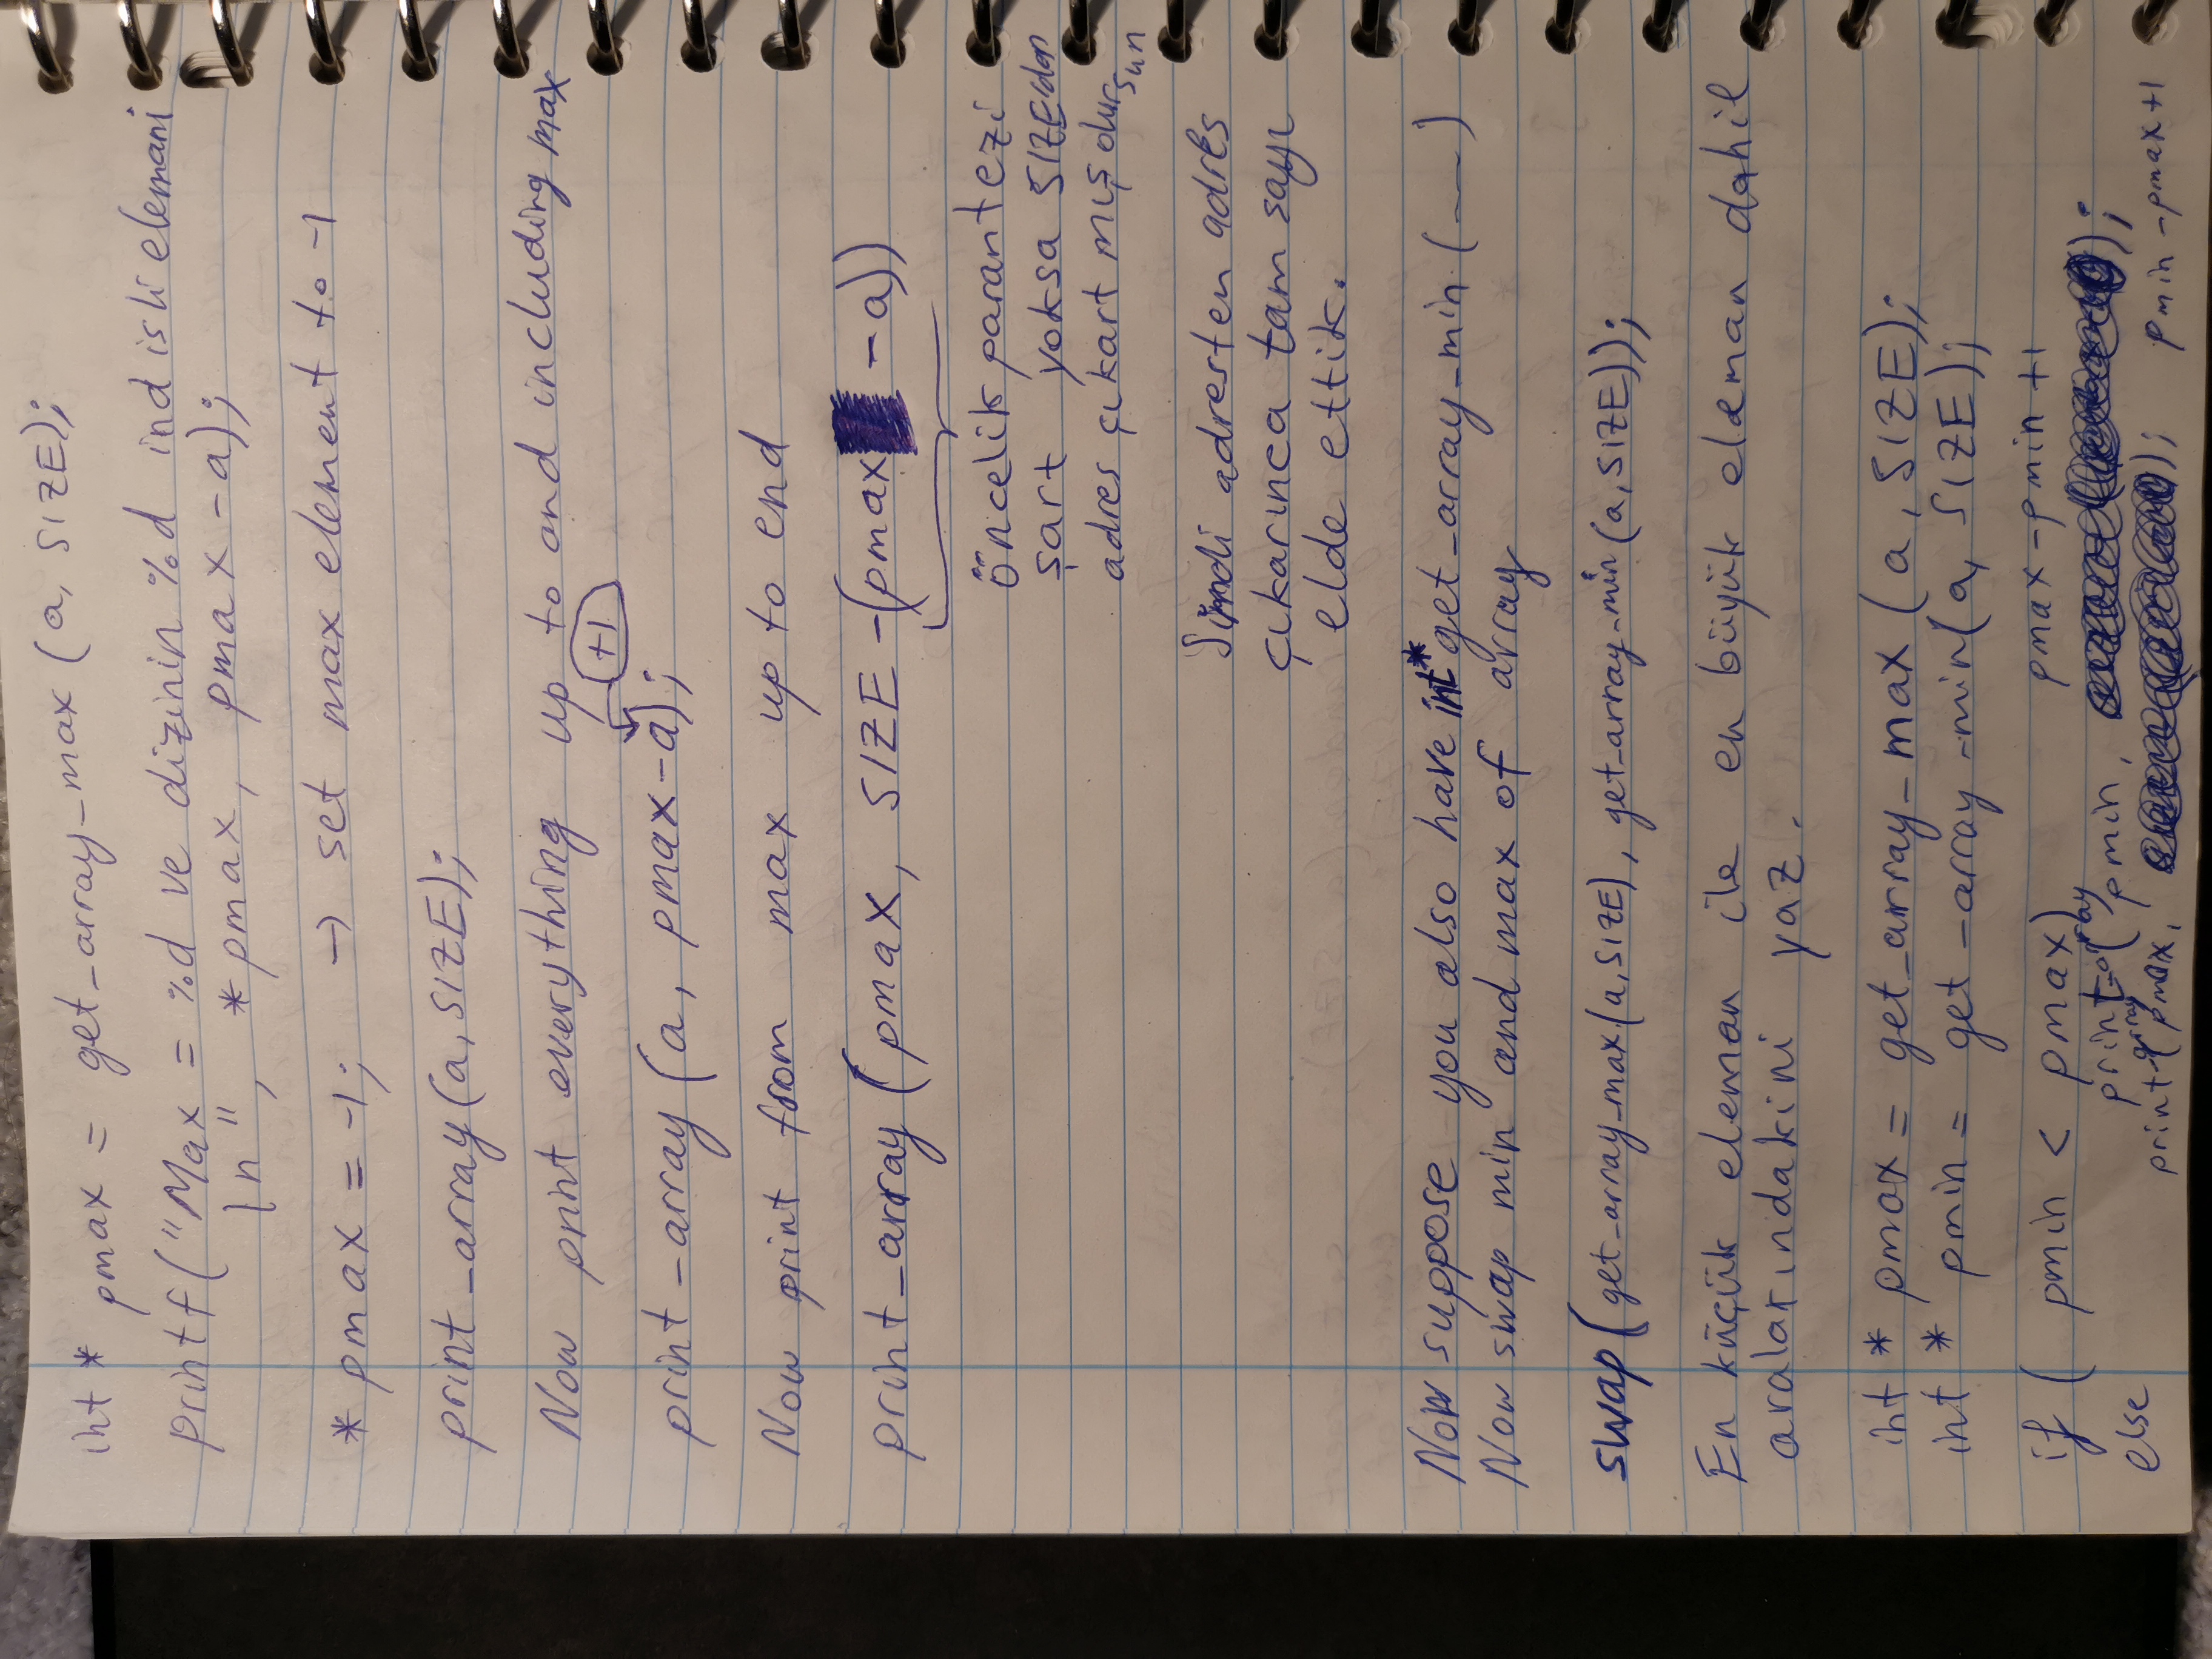 int * pmax = get_array_max (a, SIZE);
printf("Max = %d ve dizinin %d indisli elemani
\n", *pmax, pmax - a);
* pmax = -1; → set max element to -1
print_array(a, SIZE);
Now print everything up to and including max
+1
print_array (a, pmax-a);
Now print from max up to end
print_array (pmax, SIZE -(pmax -a))
öncelik parantezi
şart yoksa SIZE'dan
adres çıkartmış olursun
Şimdi adresten adres
çıkarınca tam sayı
elde ettik.
Now suppose you also have int* get_array_min (__)
Now swap min and max of array
swap(get_array_max(a,SIZE), get_array_min(a,SIZE));
En küçük eleman ile en büyük eleman dahil
aralarındakini yaz.
int * pmax = get_array_max (a, SIZE);
int * pmin = get_array_min(a, SIZE);
if ( pmin < pmax)
pmax-pmin +1
print_array( pmin, );
else
print_array( pmax, ); pmin-pmax+1